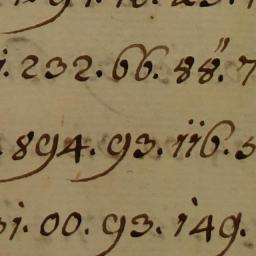 232. 66. 88". 7
894. 93. 116. 5
31. 00. 93. 149.